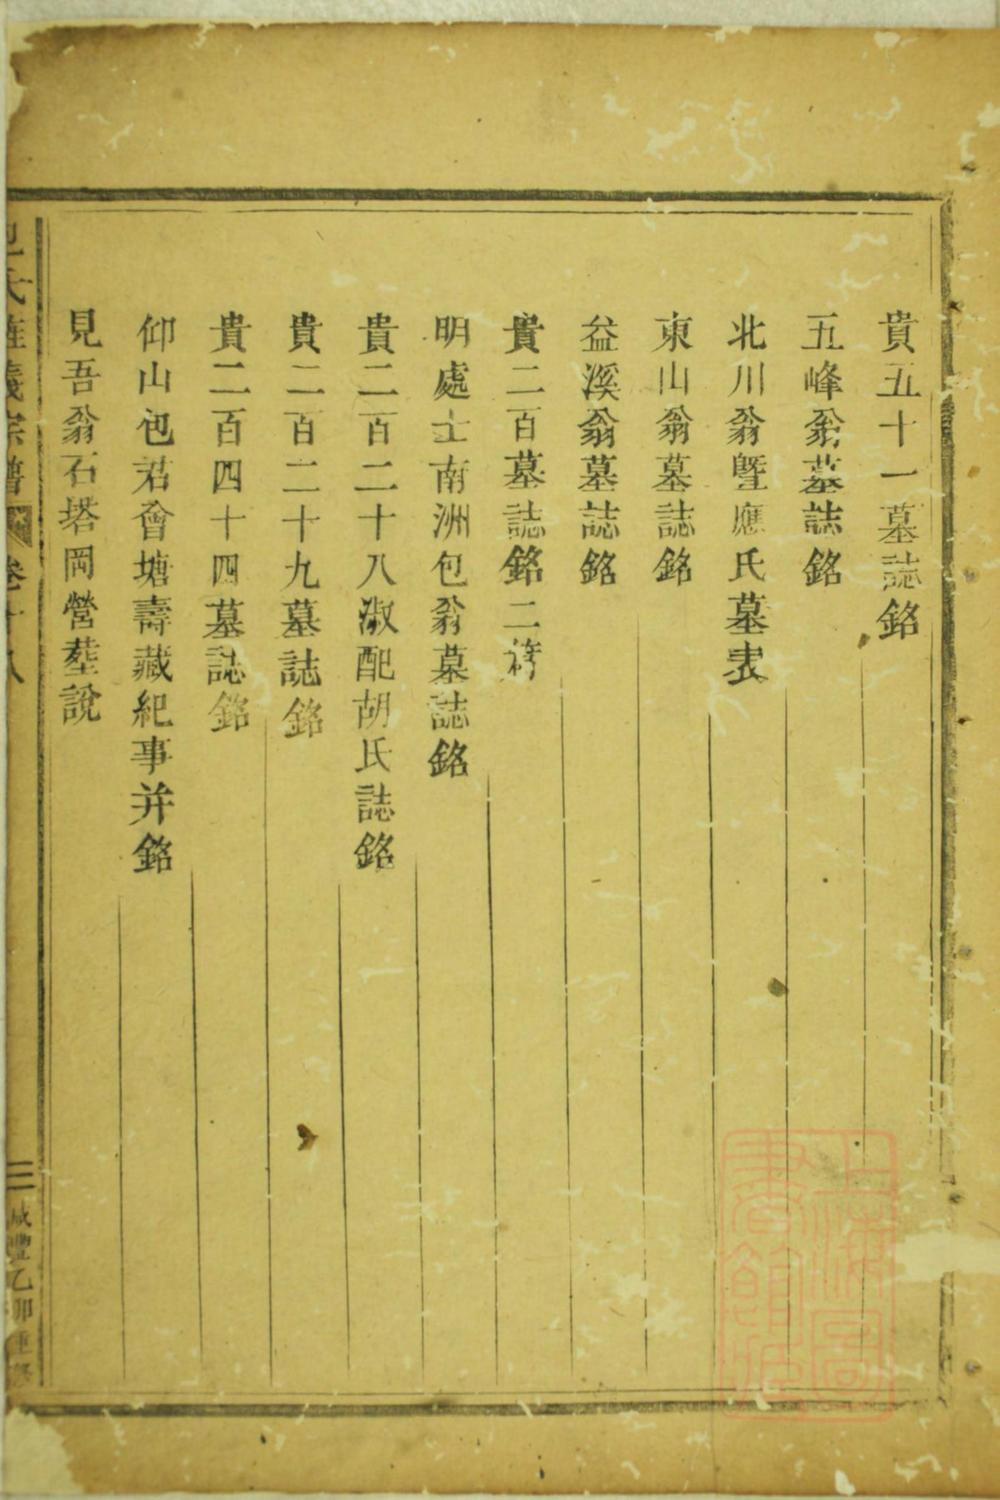 貴五十一墓誌銘
五峰翁墓誌銘
北川翁曁應氏墓表
東山翁墓誌銘
益溪翁墓誌銘
貴二百墓誌銘二
明處士南洲包翁墓誌銘
貴二百二十八淑配胡氏誌銘
貴二百二十九墓誌銘
貴二百四十四墓誌銘
仰山包君會塘壽藏紀事并銘
見吾翁石塔岡營塟說
包氏 義宗譜 卷十八 三 咸豐乙卯重修
上海圖書館藏